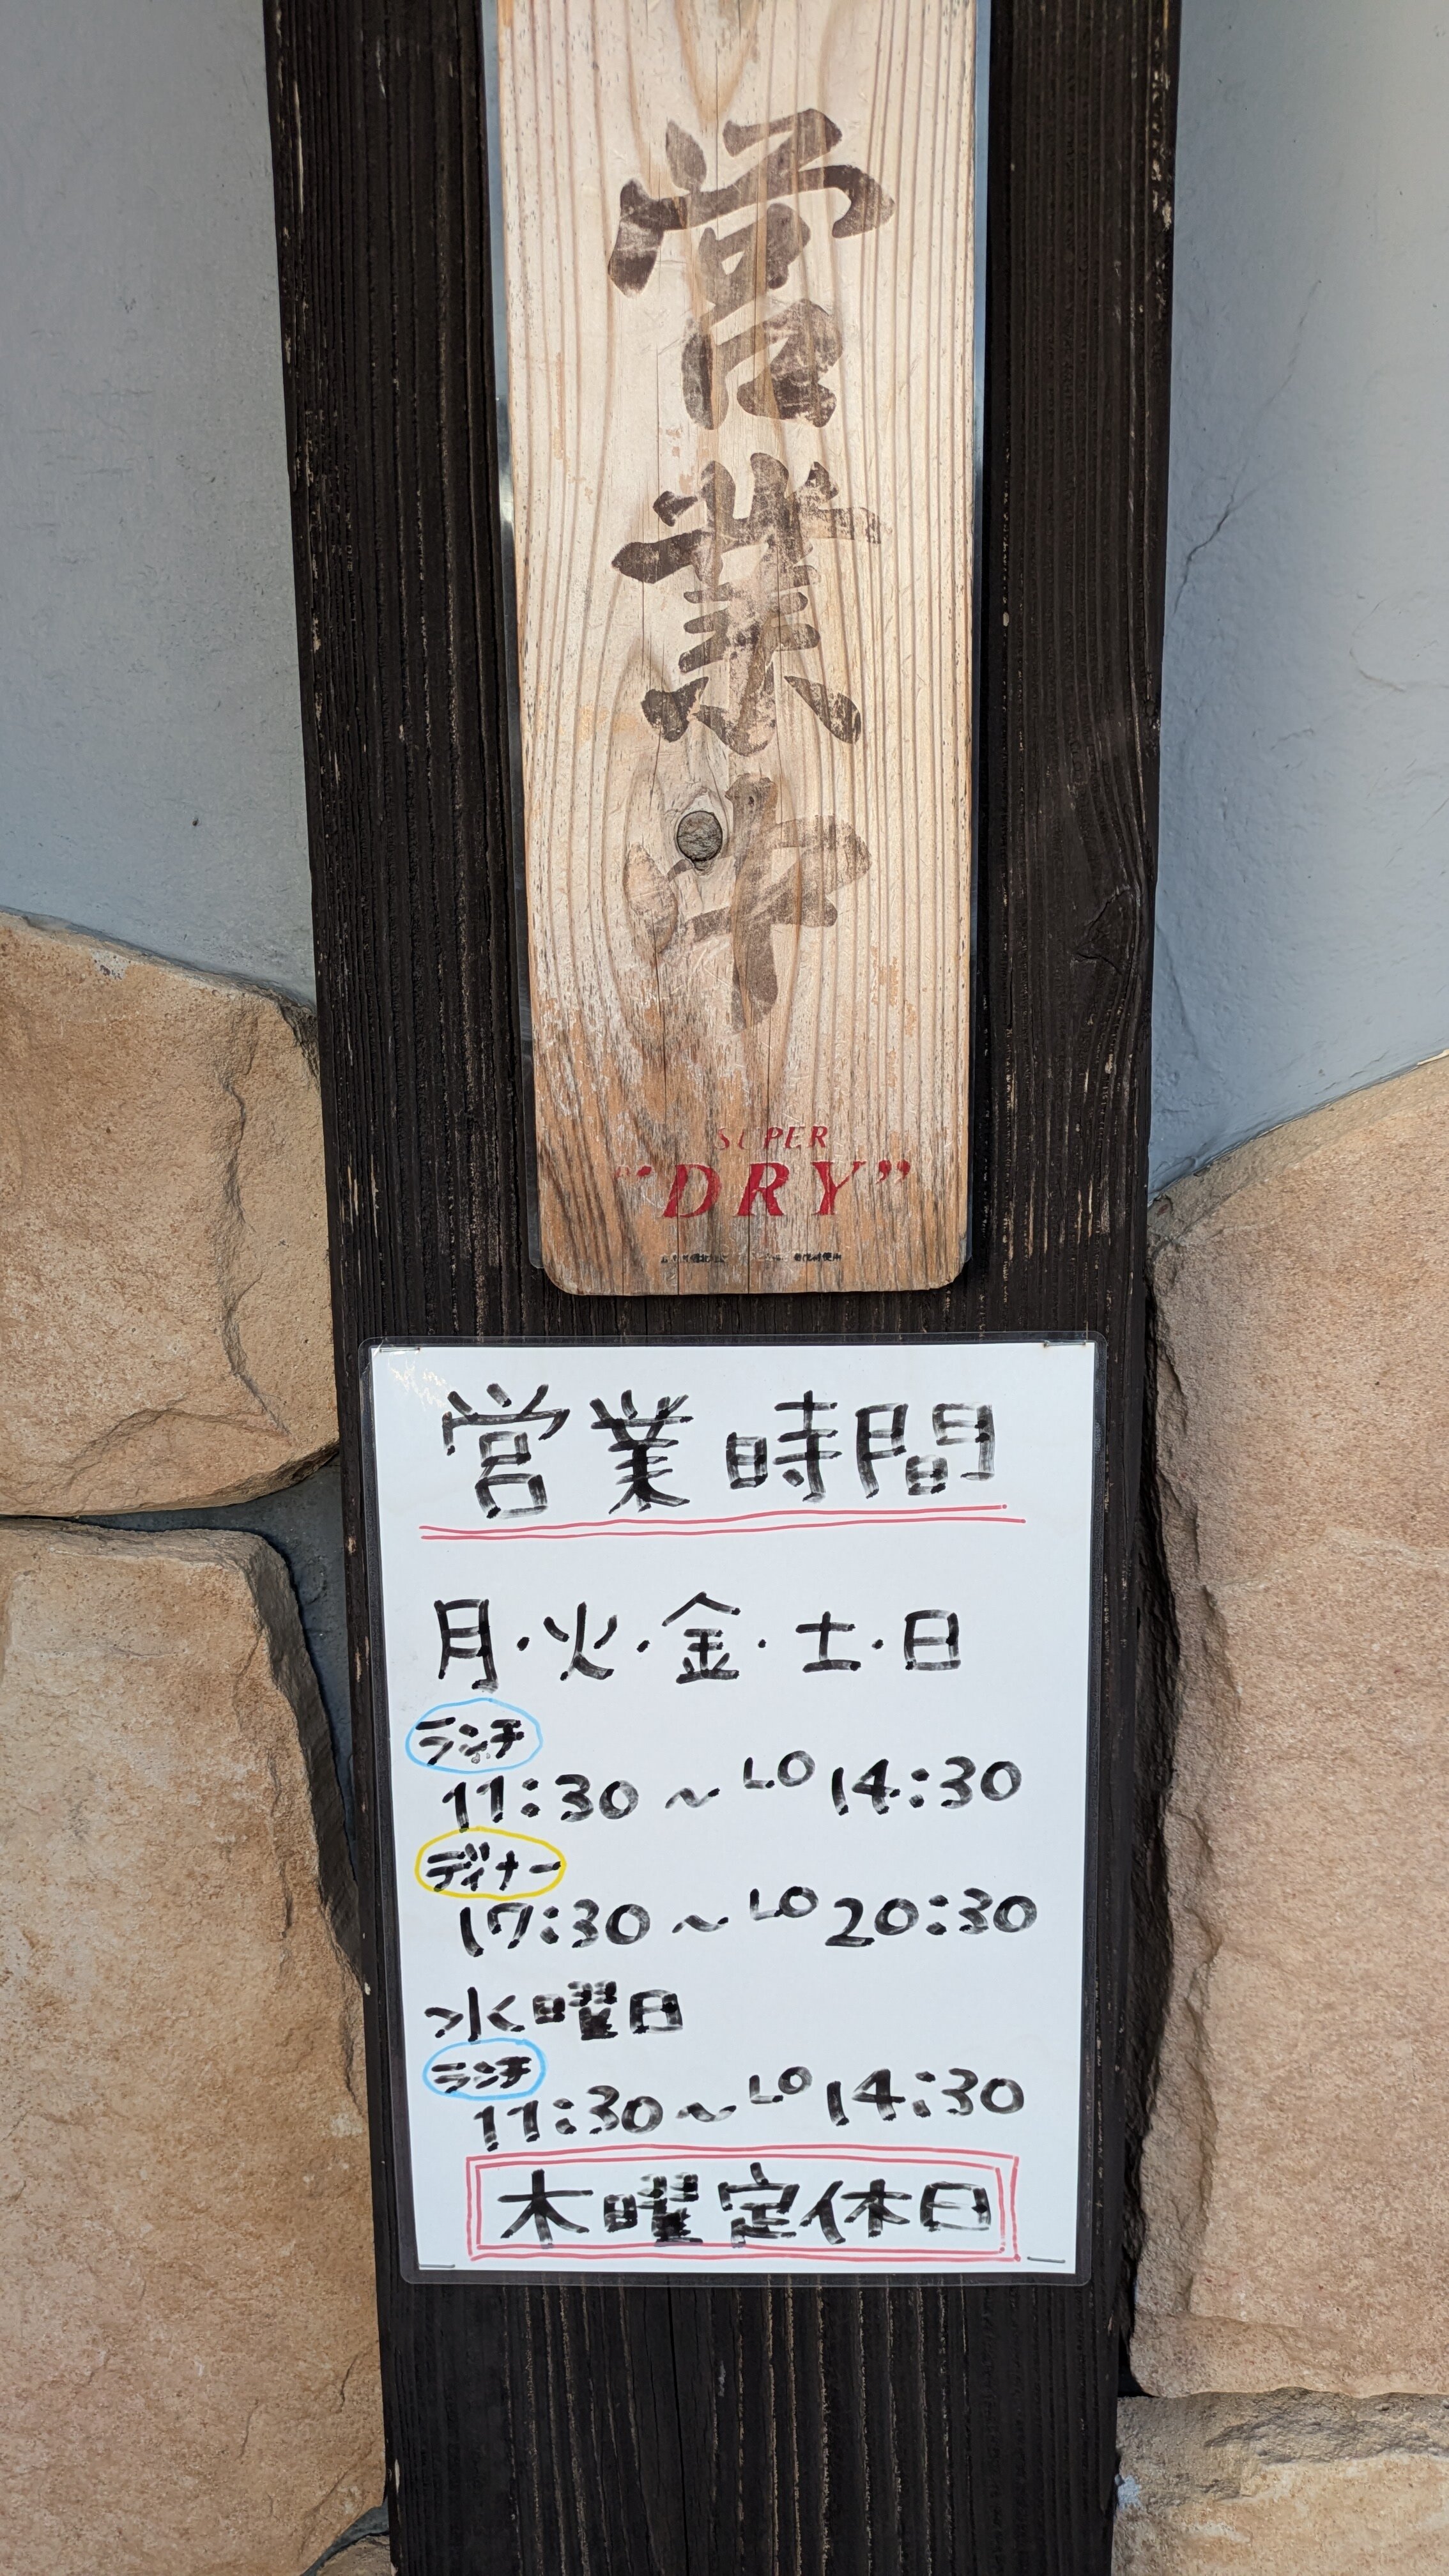 営業中
SUPER
"DRY"
営業時間
月・火・金・土・日
ランチ
11:30～LO14:30
ディナー
17:30～LO20:30
水曜日
ランチ
11:30～LO14:30
木曜定休日